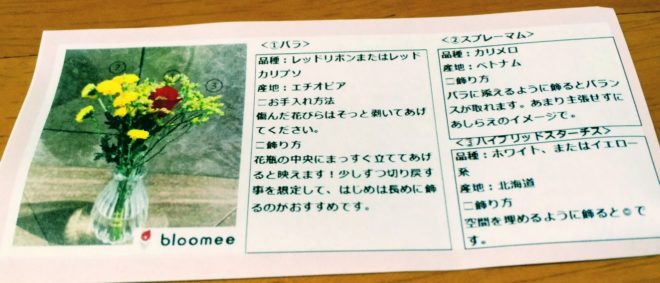 ②
③
①
bloomee
<①バラ>
品種：レッドリボンまたはレッド
カリプソ
産地：エチオピア
二お手入れ方法
傷んだ花びらはそっと剥いてあげ
てください。
二飾り方
花瓶の中央にまっすぐ立ててあげ
ると映えます！少しずつ切り戻す
事を想定して、はじめは長めに飾
るのがおすすめです。
<②スプレーマム>
品種：カリメロ
産地：ベトナム
二飾り方
バラに添えるように飾るとバラン
スが取れます。あまり主張せずに
あしらえのイメージで。
<③ハイブリッドスターチス>
品種：ホワイト、またはイエロー
系
産地：北海道
二飾り方
空間を埋めるように飾ると◎で
す。